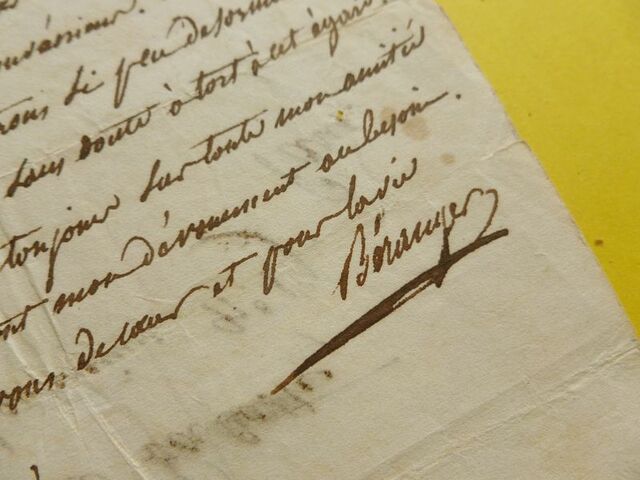 si peu de
sans doute à tort à cet égard
toujours sur toute mon amitié
mon dévouement au besoin.
vous de cœur et pour la vie
Béranger